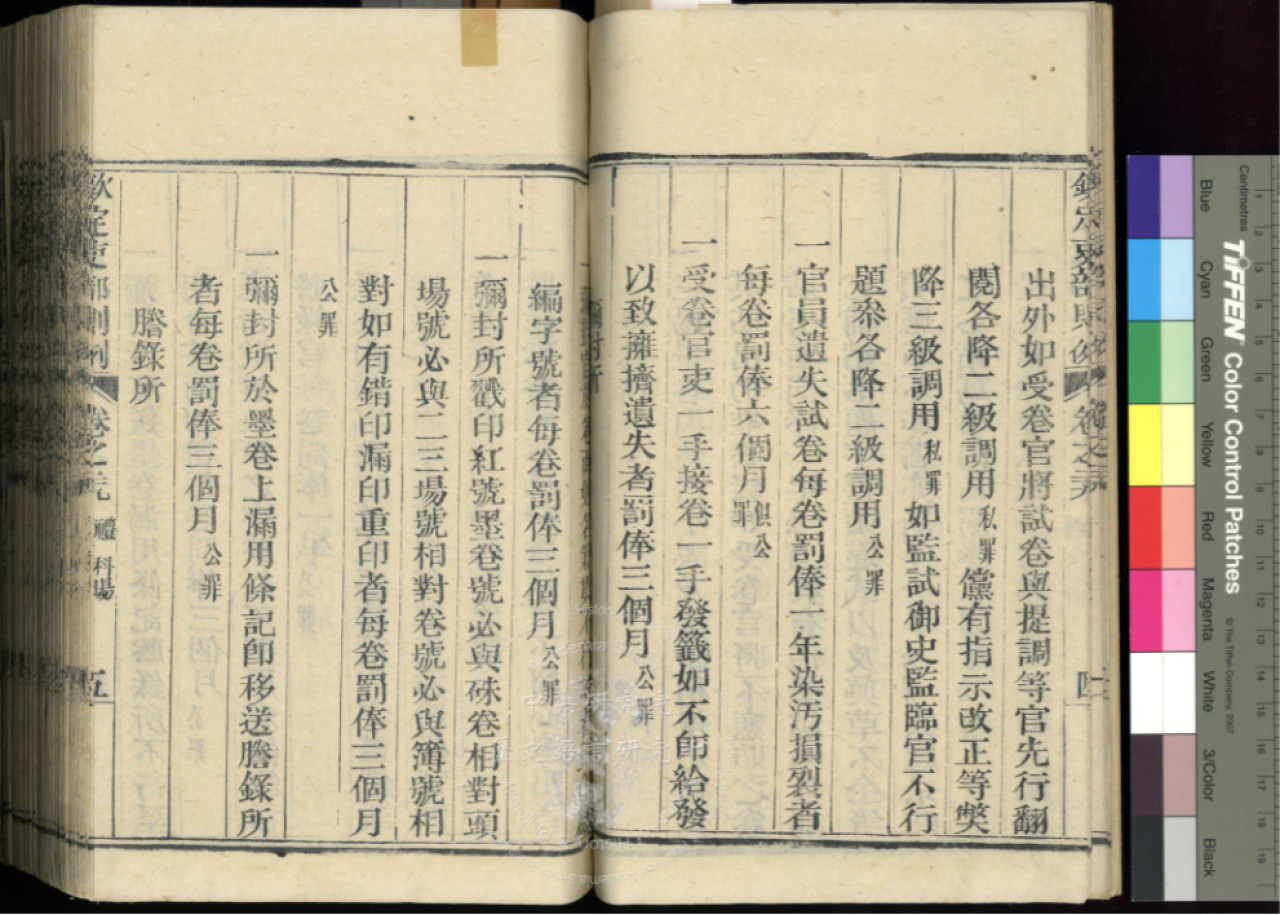 出外如受卷官將試卷與提調等官先行翻
閱各降二級調用私罪儻有指示改正等獘
降三級調用私罪如監試御史監臨官不行
題叅各降二級調用公罪
一官員遺失試卷每卷罰俸一年染汚損裂者
每卷罰俸六個月俱公罪
一受卷官吏一手接卷一手發籤如不卽給發
以致擁擠遺失者罰俸三個月公罪
彌封所
編字號者每卷罰俸三個月公罪
一彌封所戳印紅號墨卷號必與硃卷相對頭
場號必與二三場號相對卷號必與簿號相
對如有錯印漏印重印者每卷罰俸三個月
公罪
一彌封所於墨卷上漏用條記卽移送謄錄所
者每卷罰俸三個月公罪
謄錄所
欽定吏部則例 卷之 禮 科場 五
Centimetres
Blue
Cyan
Green
Yellow
Red
Magenta
White
3/Color
Black
TIFFEN Color Control Patches
© The Tiffen Company, 2007
1
2
3
4
5
6
7
8
9
10
11
12
13
14
15
16
17
18
19